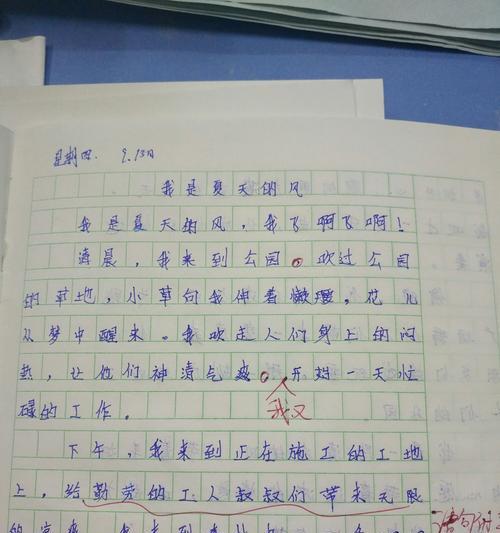 星期四. 9.13日
我是夏天的风
我是夏天的风，我飞啊飞啊！
清晨，我来到公园。吹过公园
的草地，小草向我伸着懒腰。花儿
从梦中醒来。我吹走人们身上的闷
热，让他们神清气爽。开始一天忙
碌的工作。
我又
下午，我来到正在施工的工地
上，给勤劳的工人叔叔们带来无限